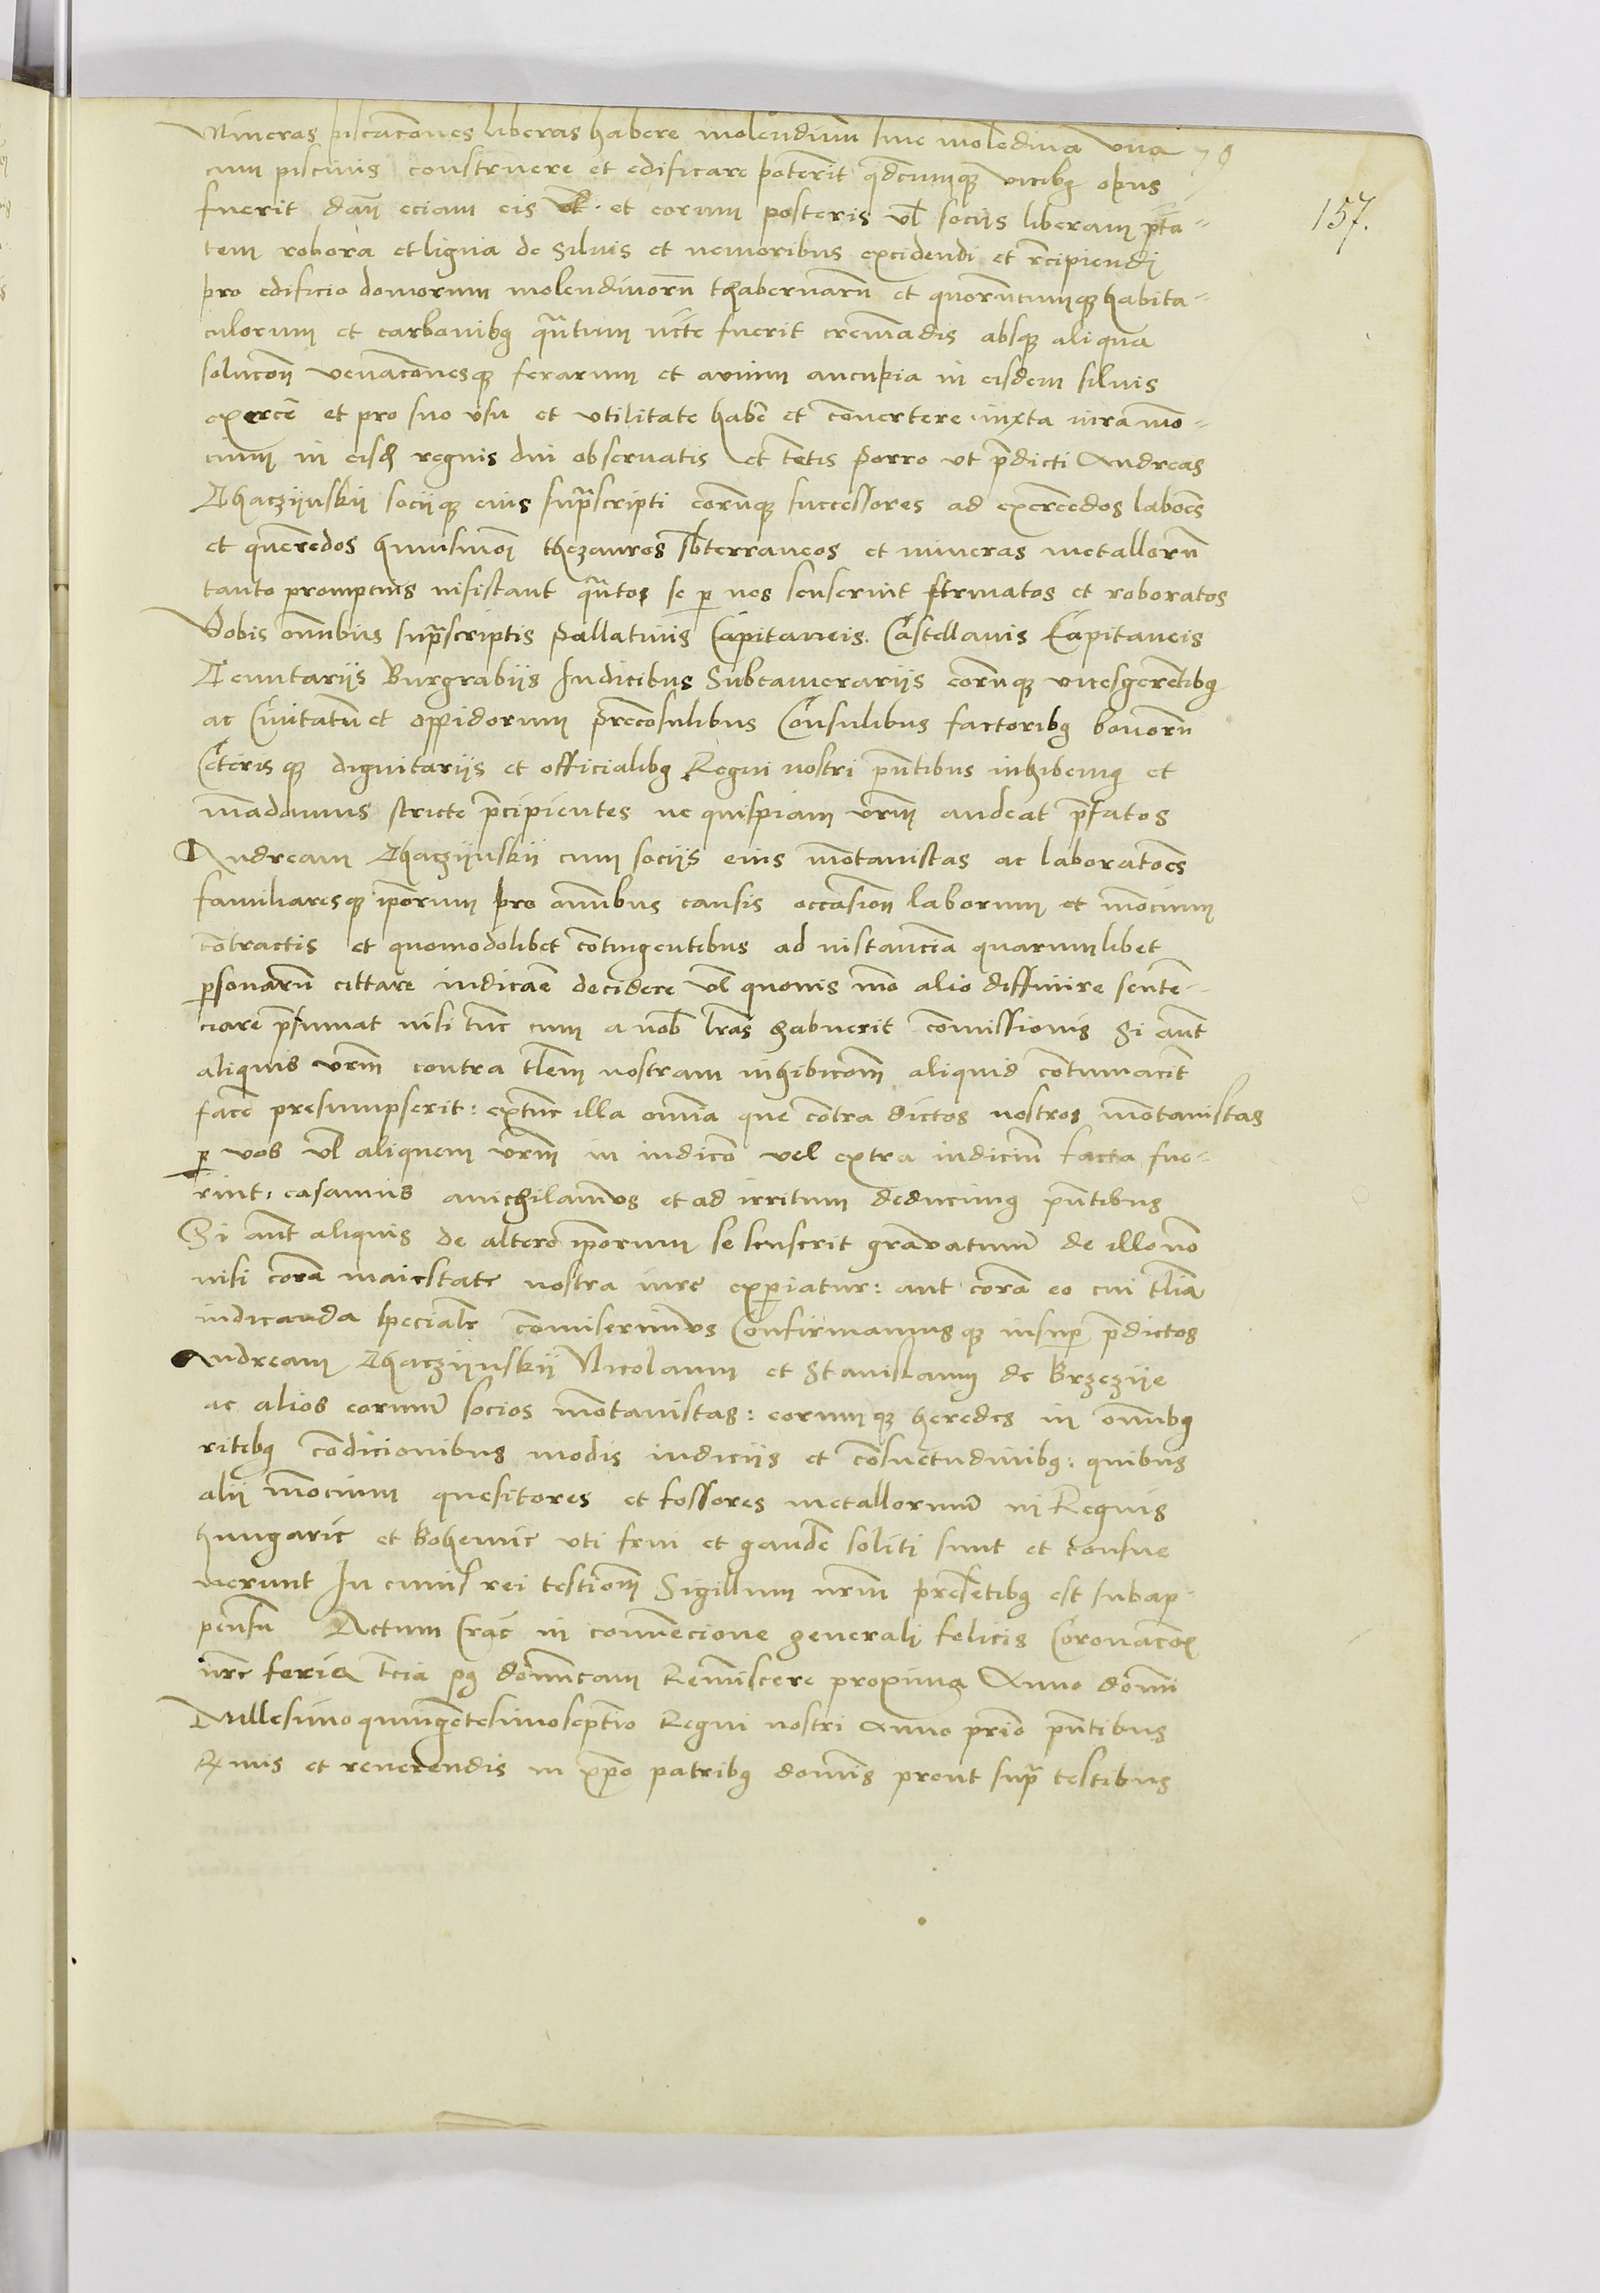 Mineras piscacones liberas habere molendinum sive molendina una 78
cum piscinis construere et edificare poterit qdcumqz vicibg opus
fuerit dan eciam eis et eorum posteris vl sociis liberam ptā-
tem robora et ligna de Silvis et nemoribus excidendi et recipiendi
pro edificio domorum molendinorū thabernarū et quorūcumqz habita-
culorum et carbonibg quātum ncte fuerit cremādis absqz aliqua
solucon venaconesqz ferarum et avium aucupia in eisdem silvis
exercē et pro suo vsu et vtilitate habē et convertere iuxta iura mō-
cium in eisd regnis diu observatis et tētis Porro vt prdicti Andreas
Thaczijnskij sociiqz eius suprascripti eorūqz successores ad exercēdos labores
et querēdos huiusmōi thezauros sbterraneos et mineras metallorū
tanto prompcius insistant quātos se p nos senserint firmatos et roboratos
Vobis omnibus supra scriptis Pallatinis Capitaneis Castellanis Capitaneis
Tenutariis Burgrabiis Iudicibus Subcamerariis eorūqz vicesgerētibg
ac Civitatū et oppidorum preconsulibus Consulibus factoribg bonorū
Ceterisqz dignitariis et officialibg Regni nostri pntibus inhibemg et
mādamus stricte precipientes ne quispiam vrm audeat prefatos
Andream Thaczijnskij cum sociis eius mōtanistas ac laboratores
familiaresqz iporum pro omnibus causis occasion laborum et mōcium
contractis et quomodolibet contingentibus ad instancia quarumlibet
psonarū cittare iudicare decidere vl quovis mō alio diffinire senten-
ciare presumat nisi tūc cum a nob lras habuerit comissionis Si aut
aliquis vrm contra tlem nostram inhibicom aliquid contumacit
facē presumpserit: extūc illa omnia que contra dictos nostros mōtanistas
p vos vl aliquem vrm in iudico vel extra iudiciū facta fue-
rint: casamus anichilamus et ad irritum deducimg pntibus
Si aut aliquis de altero iporum se senserit gravatum de illo nō
nisi corā maiestate nostra iure expiatur: aut corā eo cui tlia
iudicanda specialr comiserimus Confirmamusqz insup predictos
Andream Thaczijnskij Nicolaum et Stanislaum de Brzezije
ac alios eorum socios mōtanistas: eorumqz heredes in omnibg
ritibg condicionibus modis iudiciis et consuetudinibg: quibus
alii mōcium quesitores et fossores metallorum in Regnis
hungarie et Bohemie vti frui et gaudē soliti sunt et consue
verunt In cuius rei testiom Sigillum nrm presetibg est subap-
pensu Actum Crac in convencione generali felicis Coronacois
nre feria tcia pg domicam Reminiscere proxima Anno domi
Millesimo quingētesimoseptio Regni nostri anno primo pntibus
Rmis et reverendis in xpo patribg domis prout supra testibus
157.